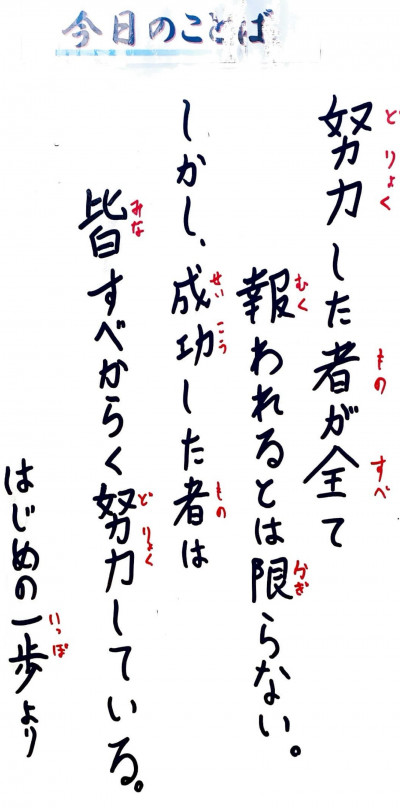 今日のことば
努力した者が全て
報われるとは限らない。
しかし、成功した者は
皆すべからく努力している。
はじめの一歩より
どりょく
もの
すべ
むく
かぎ
せいこう
もの
みな
どりょく
いっぽ